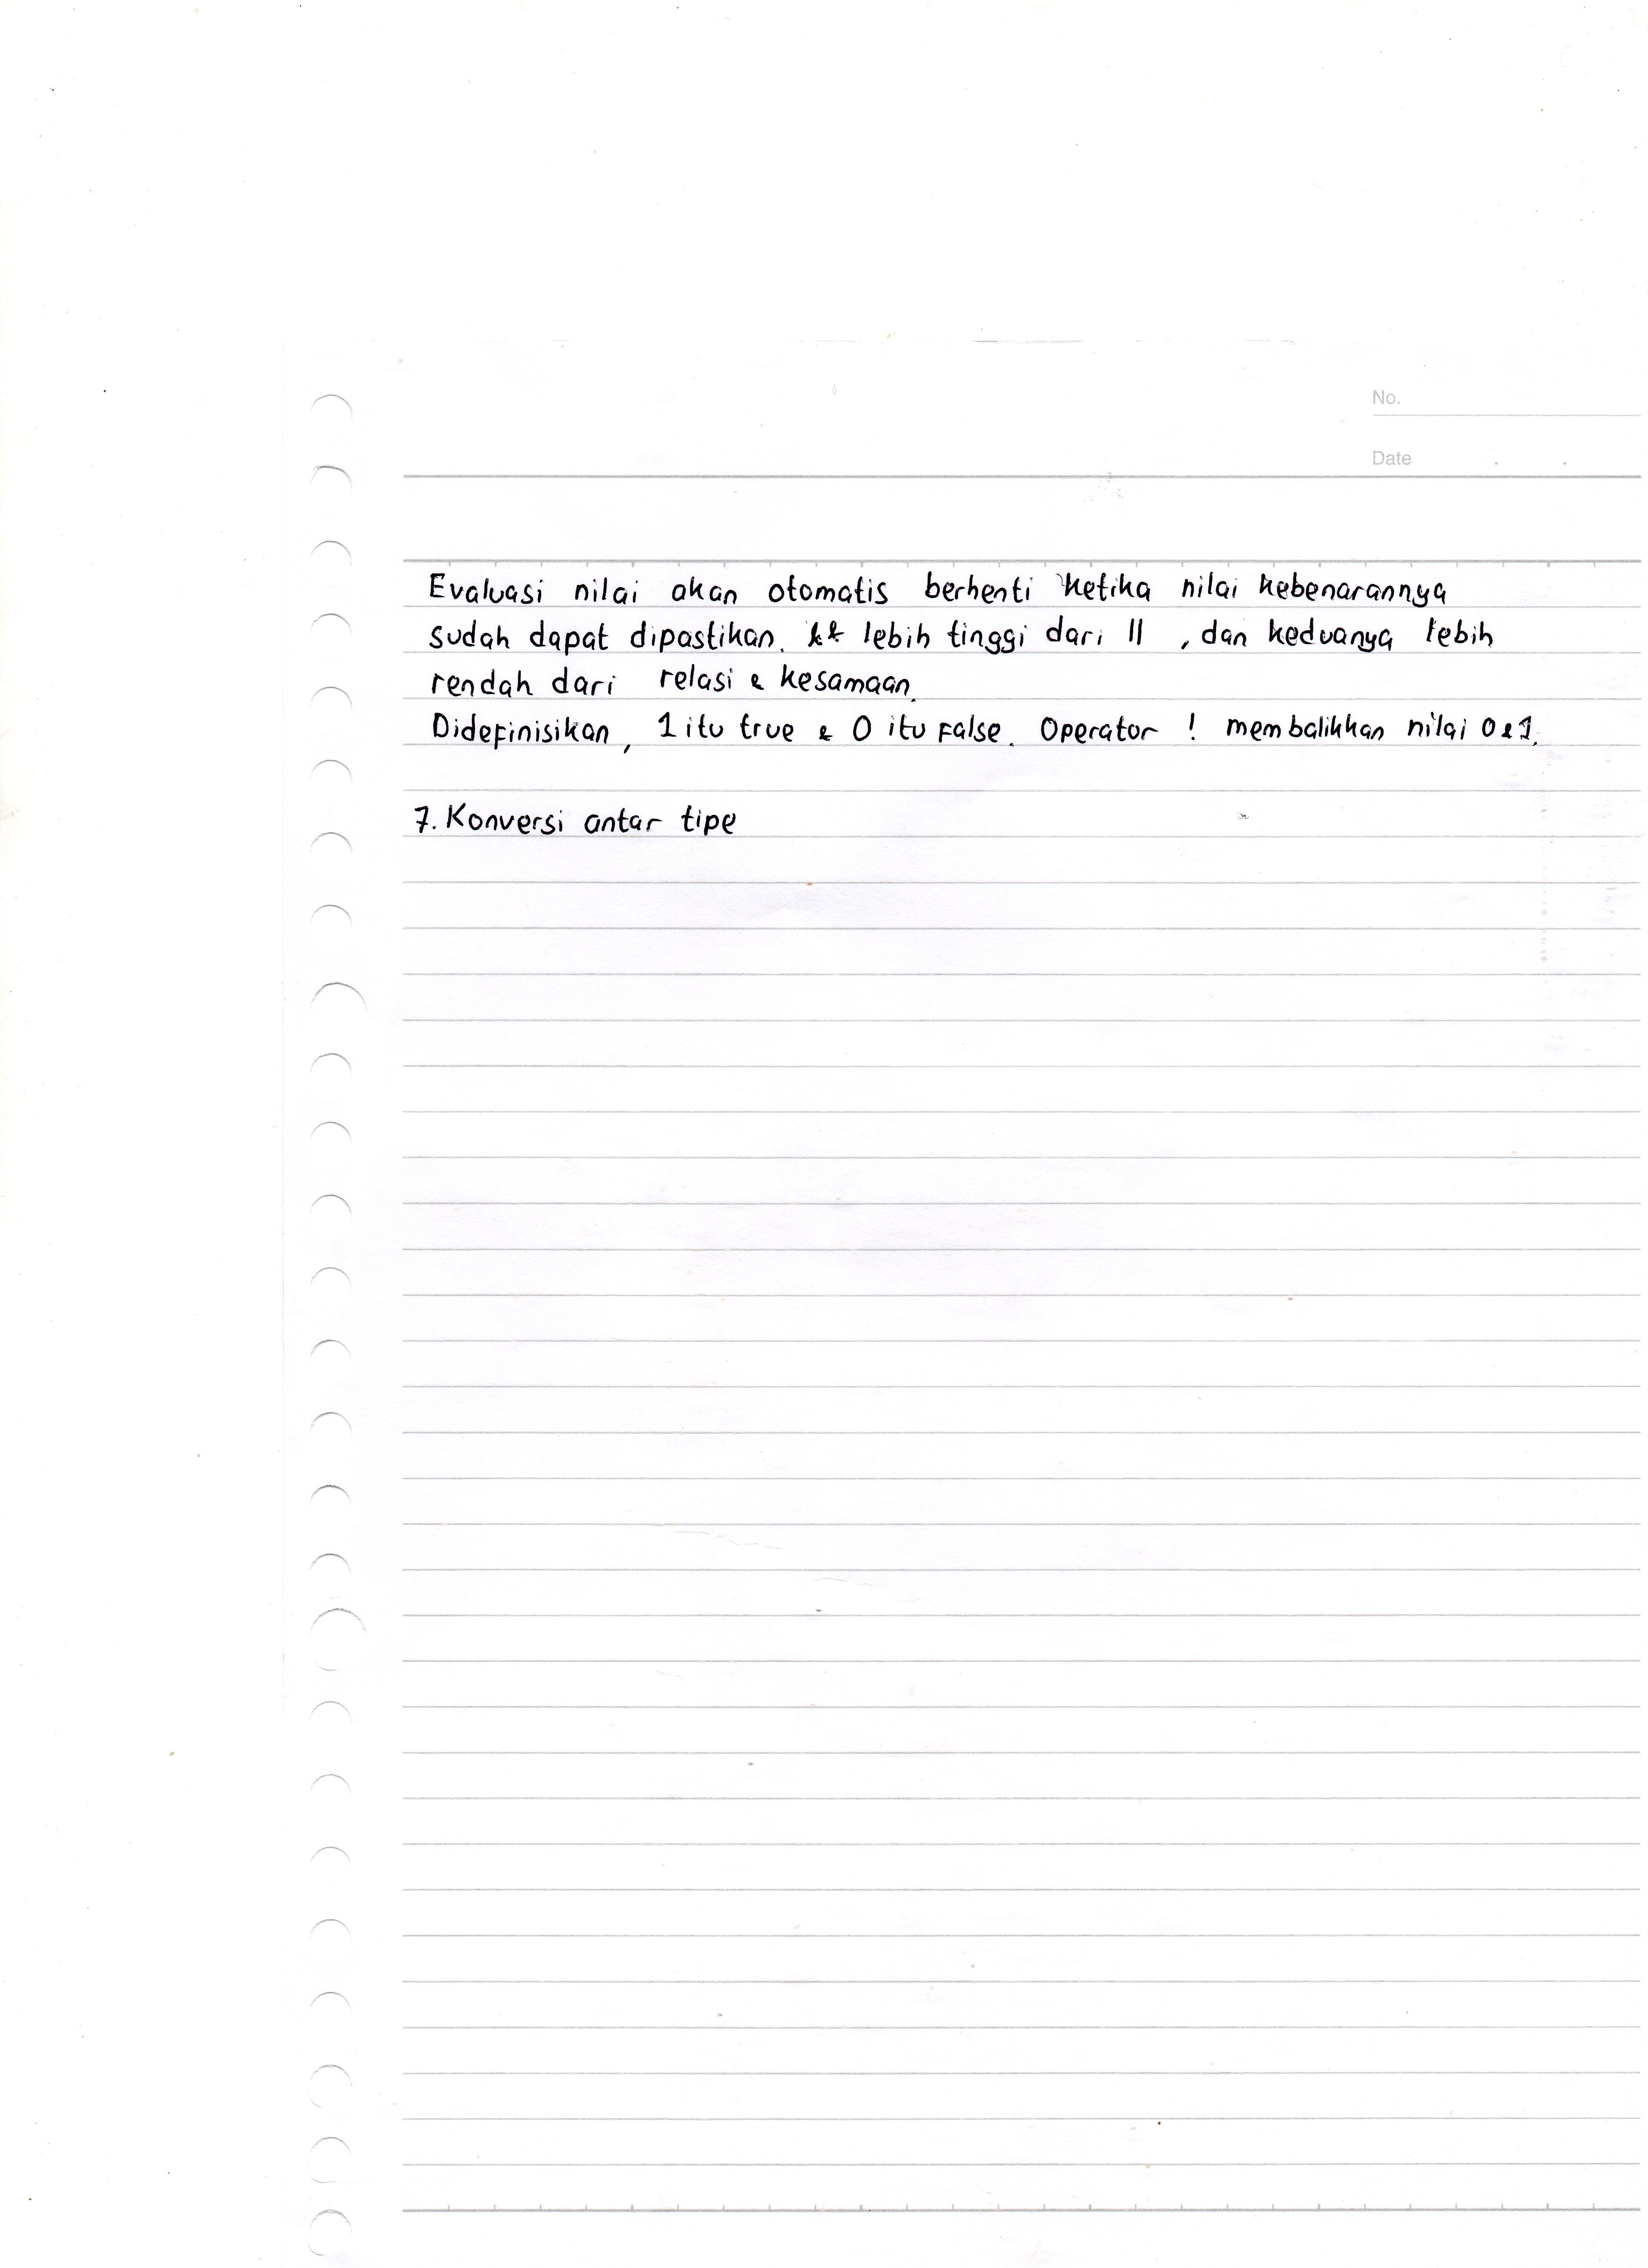 No.
Date
Evaluasi nilai akan otomatis berhenti ketika nilai kebenarannya
sudah dapat dipastikan. && lebih tinggi dari || , dan keduanya lebih
rendah dari relasi & kesamaan.
Didefinisikan, 1 itu true & 0 itu false. Operator ! membalikkan nilai 0 & 1.
7. Konversi antar tipe